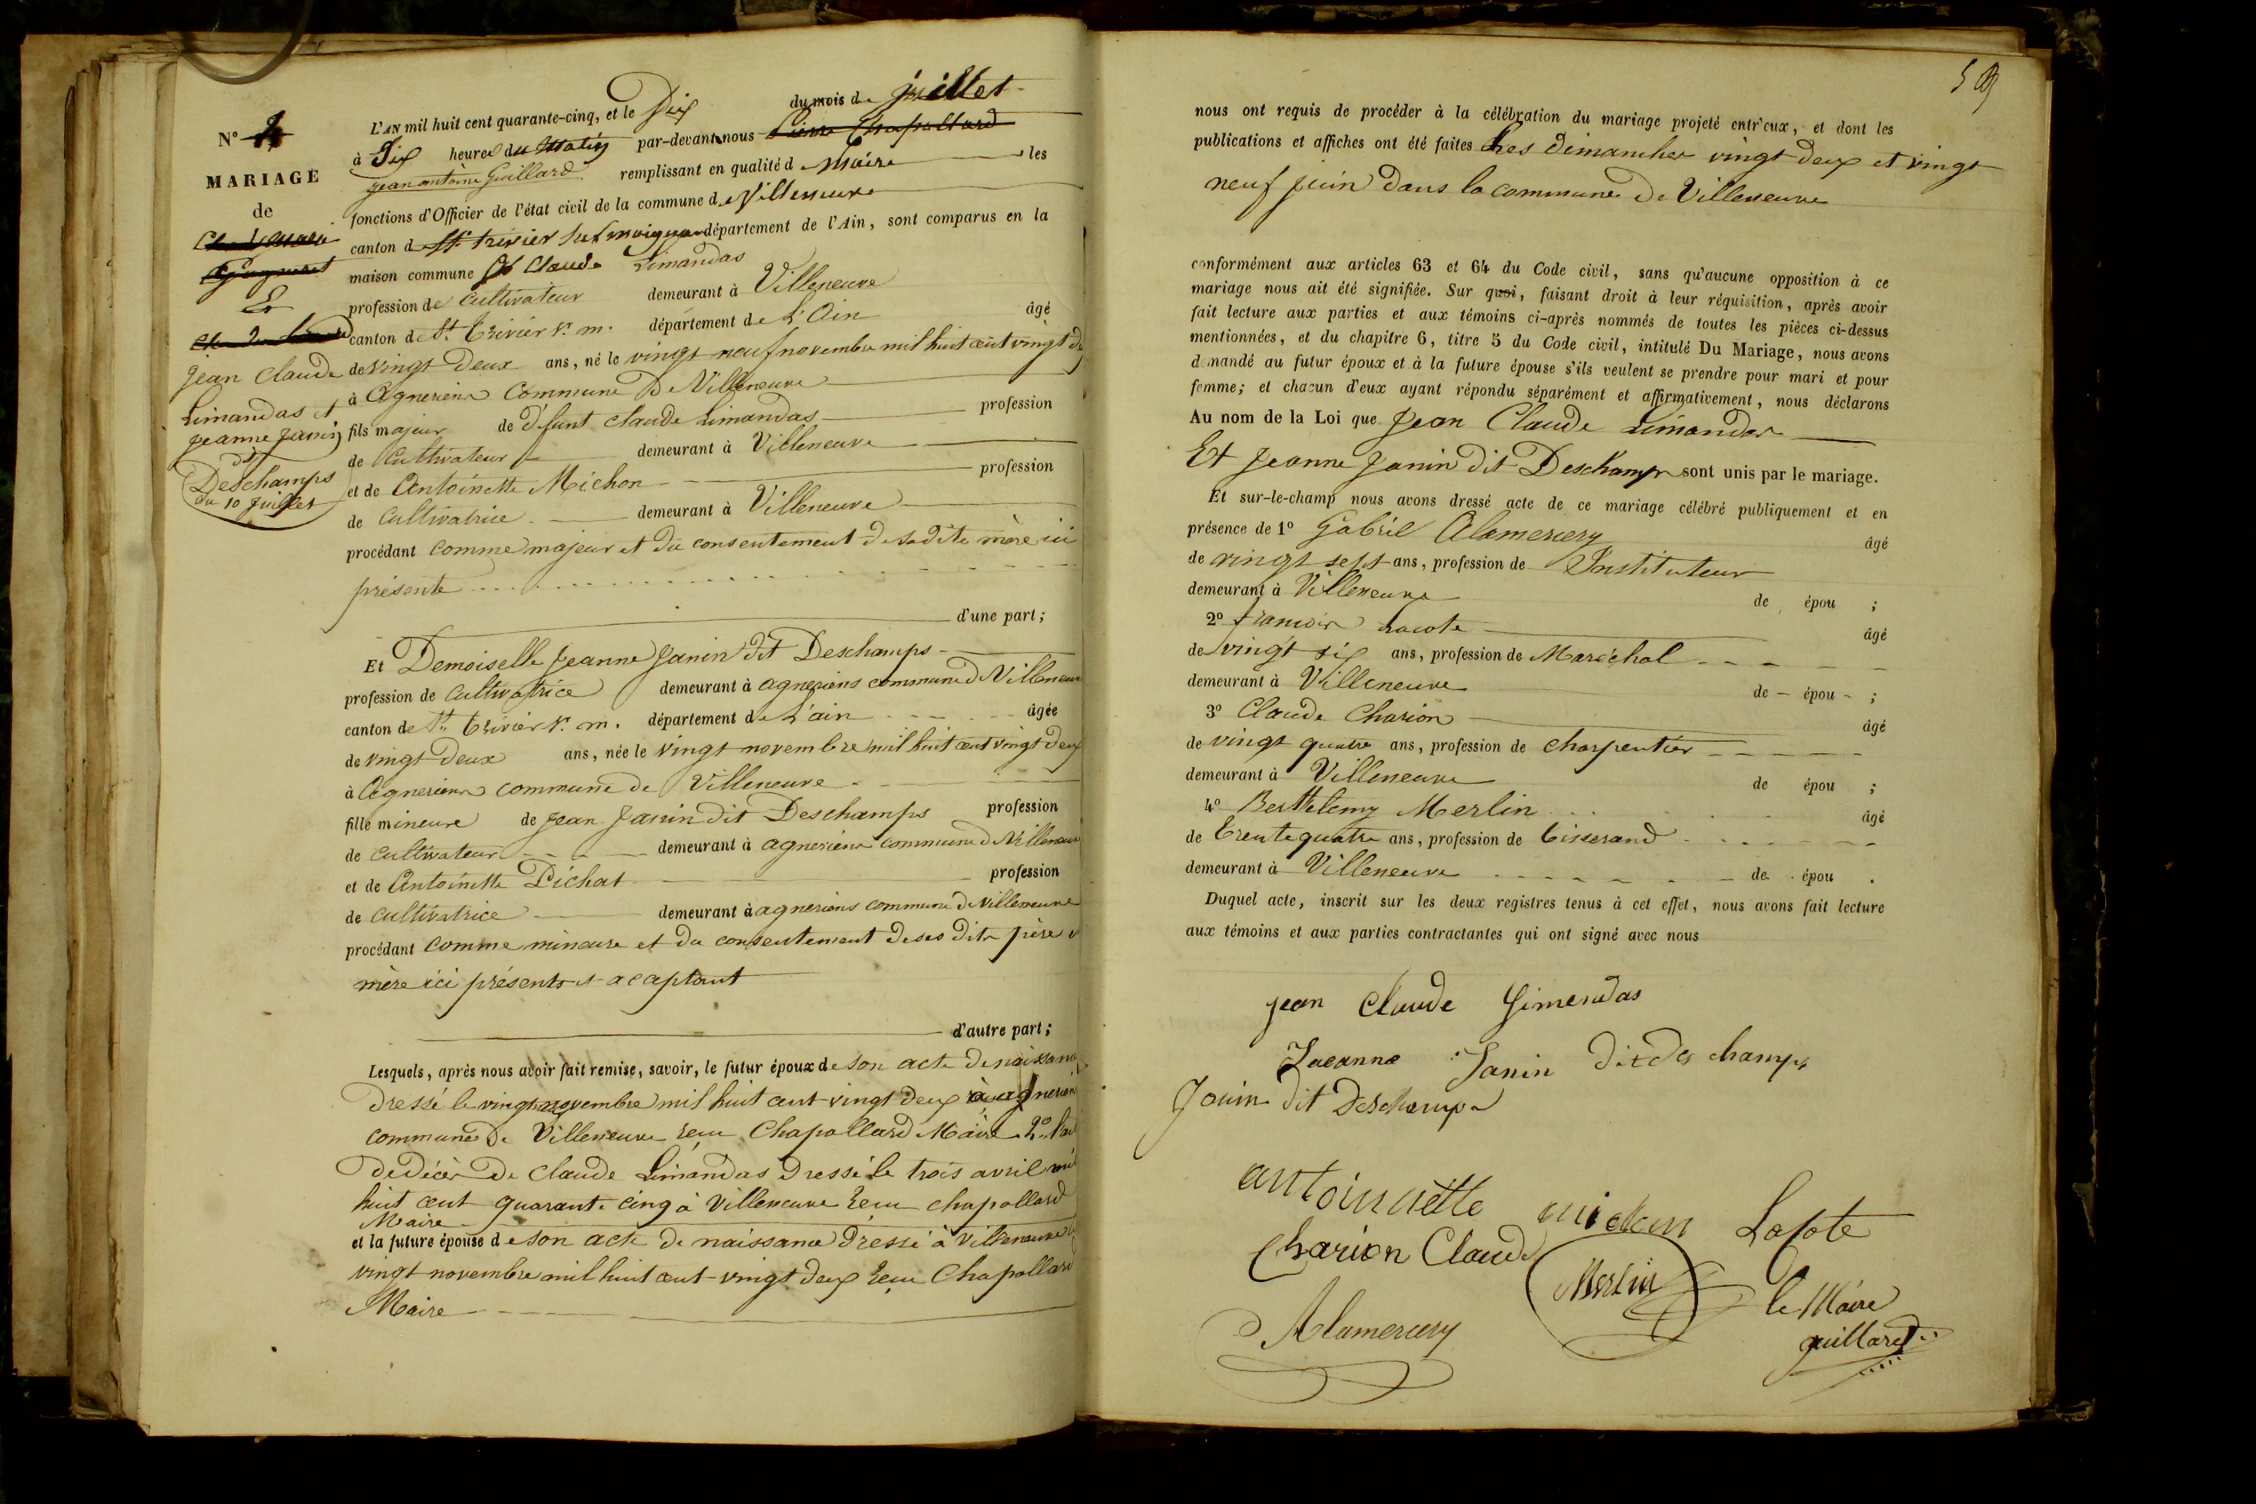 N° 4
MARIAGE
de
Et
Jean Claude
Limandas et
Jeanne Janin
dit
Deschamps
du 10 Juillet
L'AN mil huit cent quarante-cinq, et le Dix du mois de juillet
à Dix heures du Matin par-devant nous Pierre Chapollard
jean antoine Guillard remplissant en qualité de Maire les
fonctions d'Officier de l'état civil de la commune de Villeneuve
canton de St. trivier sur moignans département de l'Ain, sont comparus en la
maison commune Claude Limandas
profession de Cultivateur demeurant à Villeneuve
canton de St. Trivier s. m. département de L'Ain âgé
de vingt Deux ans, né le vingt neuf novembre mil huit cent vingt d
à Agneriens Commune De Villeneuve
fils majeur de Défunt Claude Limandas profession
de Cultivateur demeurant à Villeneuve
et de Antoinette Michon profession
de Cultivatrice demeurant à Villeneuve
procédant comme majeur et du consentement de sadite mère ici
présente
d'une part;
Et Demoiselle Jeanne Janin dit Deschamps
profession de Cultivatrice demeurant à agneriens commune de Villeneuve
canton de St. Trivier s. m. département de L'ain âgée
de vingt Deux ans, née le vingt novembre mil huit cent vingt deux
à Agneriens commune de Villeneuve
fille mineure de Jean Janin dit Deschamps profession
de cultivateur demeurant à agneriens commune de Villeneuve
et de Antoinette Pichat profession
de cultivatrice demeurant à agneriens commune de Villeneuve
procédant comme mineure et du consentement de ses dits père et
mère ici présents et acaptant
d'autre part;
Lesquels, après nous avoir fait remise, savoir, le futur époux de son acte de naissance
Dressé le vingt novembre mil huit cent vingt deux à agneriens
commune de Villeneuve reçu Chapollard Maire 2° l'acte
de décès De Claude Limandas dressé le trois avril mil
huit cent quarante cinq à Villeneuve reçu chapollard
Maire
et la future épouse de son acte de naissance dressé à Villeneuve le
vingt novembre mil huit cent vingt deux reçu Chapollard
Maire
nous ont requis de procéder à la célébration du mariage projeté entr'eux, et dont les
publications et affiches ont été faites Les Dimanches vingt deux et vingt
neuf juin Dans la commune De Villeneuve
conformément aux articles 63 et 64 du Code civil, sans qu'aucune opposition à ce
mariage nous ait été signifiée. Sur quoi, faisant droit à leur réquisition, après avoir
fait lecture aux parties et aux témoins ci-après nommés de toutes les pièces ci-dessus
mentionnées, et du chapitre 6, titre 5 du Code civil, intitulé Du Mariage, nous avons
demandé au futur époux et à la future épouse s'ils veulent se prendre pour mari et pour
femme; et chacun d'eux ayant répondu séparément et affirmativement, nous déclarons
Au nom de la Loi que Jean Claude Limandas
Et Jeanne Janin dit Deschamps sont unis par le mariage.
Et sur-le-champ nous avons dressé acte de ce mariage célébré publiquement et en
présence de 1° Gabriel Alamercery âgé
de vingt sept ans, profession de Instituteur
demeurant à Villeneuve de épou ;
2° francois Lacote âgé
de vingt six ans, profession de Maréchal
demeurant à Villeneuve de épou ;
3° Claude Charion âgé
de vingt quatre ans, profession de charpentier
demeurant à Villeneuve de épou ;
4° Berthelemy Merlin âgé
de Trente quatre ans, profession de tisserand
demeurant à Villeneuve de épou .
Duquel acte, inscrit sur les deux registres tenus à cet effet, nous avons fait lecture
aux témoins et aux parties contractantes qui ont signé avec nous
jean Claude Limendas
Jaeanne Janin dit des champs
Janin dit Deschamps
antoinette michon Lacote
Charion Claude
Merlin
le Maire
Alamercery
guillard